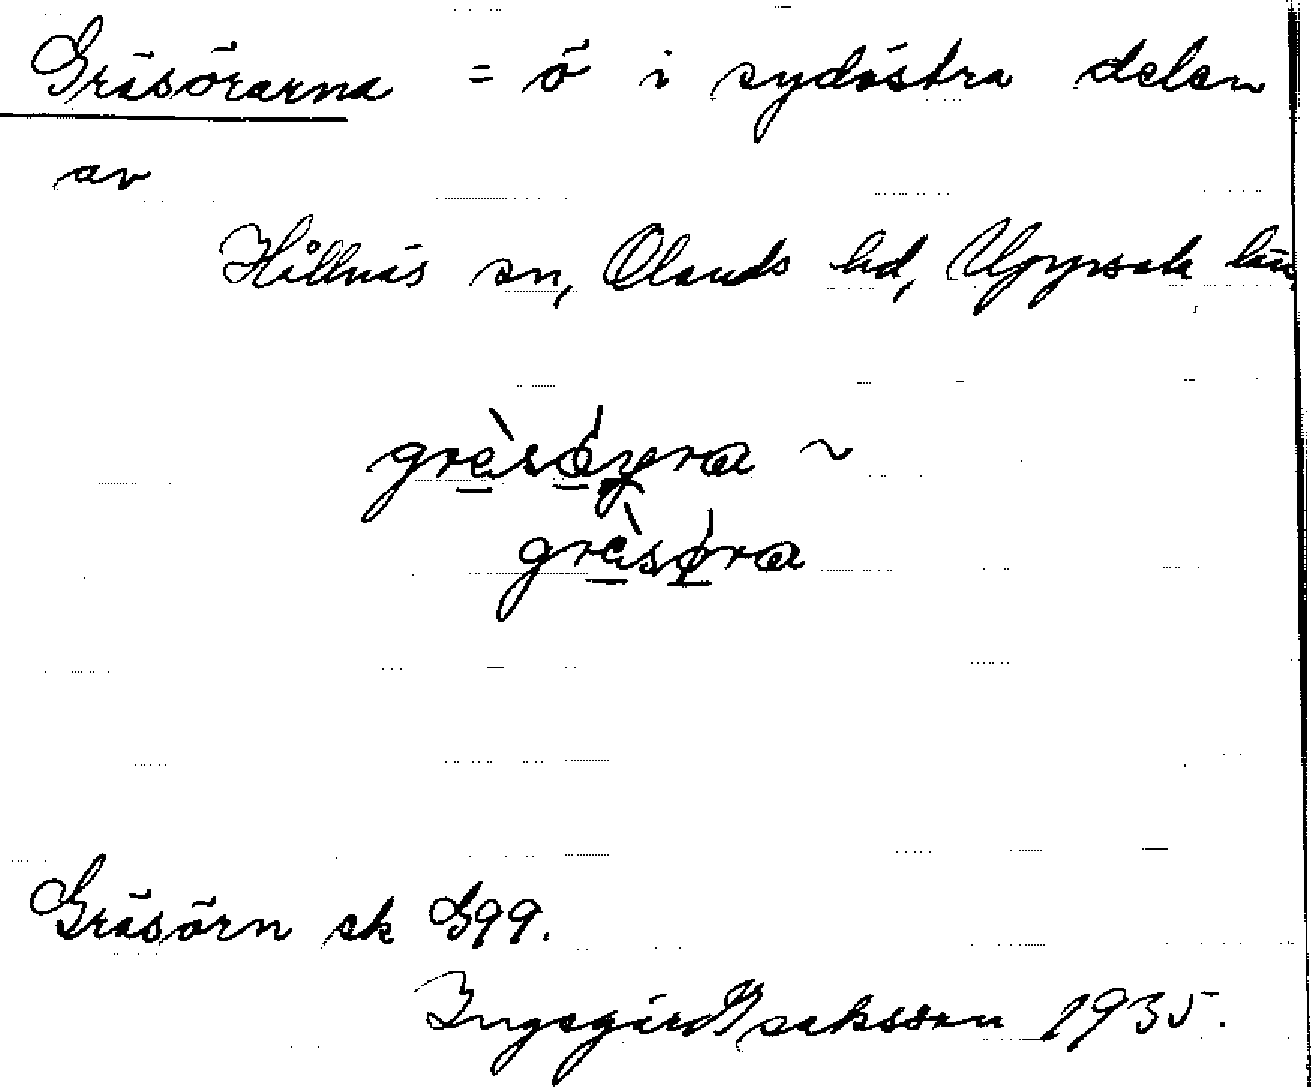 Gräsörarna = ö i sydöstra delen
av
Hållnäs sn, Olands hd, Uppsala län
gräsöyra ~
gräsøra
Gräsörn ek G99.
Ingegärd Isaksson 1935.